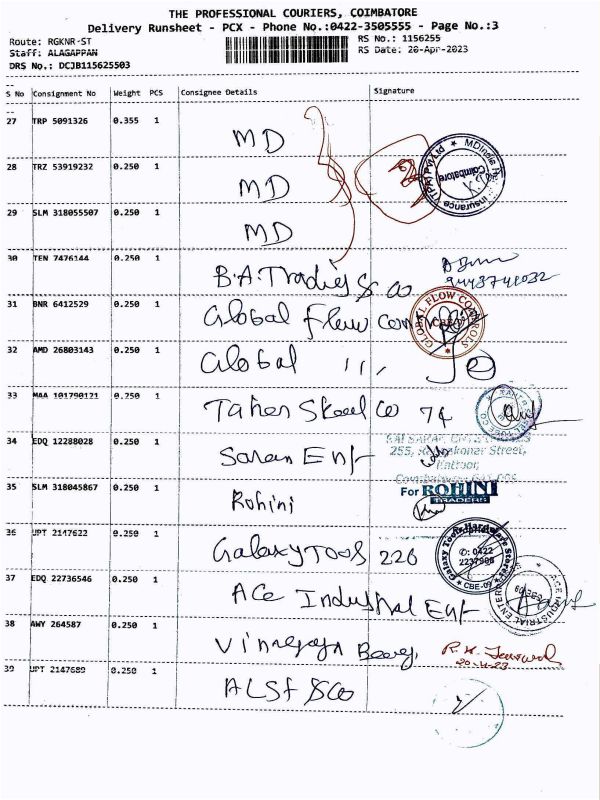 THE PROFESSIONAL COURIERS, COIMBATORE
Delivery Runsheet - PCX - Phone No.:0422-3505555 - Page No.:3
Route: RGKNR-ST RS No.: 1156255
Staff: ALAGAPPAN RS Date: 20-Apr-2023
DRS No.: DCJB115625503
S No Consignment No Weight PCS Consignee Details Signature
27 TRP 5091326 0.355 1
MD
28 TRZ 53919232 0.250 1
MD
Coimbatore
29 SLM 318055507 0.250 1
MD
30 TEN 7476144 0.250 1
B.A. Tradies & Co
31 BNR 6412529 0.250 1
Global Flow
GLOBAL FLOW CONTROLS
32 AMD 26803143 0.250 1
Global
33 MAA 101790121 0.250 1
Taher Steel Co 74
34 EDQ 12288028 0.250 1
Saran Ent
35 SLM 318045867 0.250 1
Rohini
For ROHINI
TRADERS
36 JPT 2147622 0.250 1
Galaxy Tools 226
Galaxy Tools Hardware Stores
✆: 0422
CBE-09
37 EDQ 22736546 0.250 1
Ace Industrial Ent
ACE INDUSTRIAL ENTER
38 AWY 264587 0.250 1
20-4-23
39 JPT 2147689 0.250 1
ALSF & Co